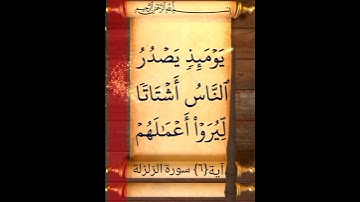 بسم الله الرحمن الرحيم
يَوۡمَئِذٖ يَصۡدُرُ
ٱلنَّاسُ أَشۡتَاتٗا
لِّيُرَوۡاْ أَعۡمَٰلَهُمۡ
آية{٦} سورة الزلزلة